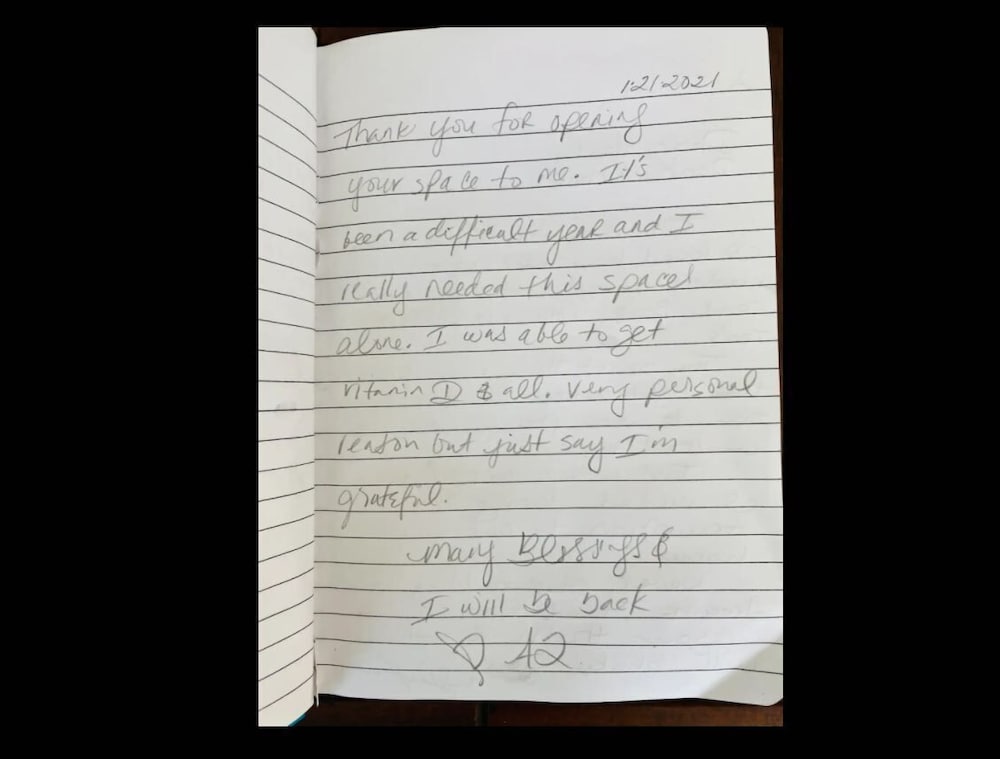 1·21·2021
Thank you for opening
your space to me. It's
been a difficult year and I
really needed this space
alone. I was able to get
vitamin D & all. Very personal
reason but just say I'm
grateful.
Many Blessings &
I will be back
A2